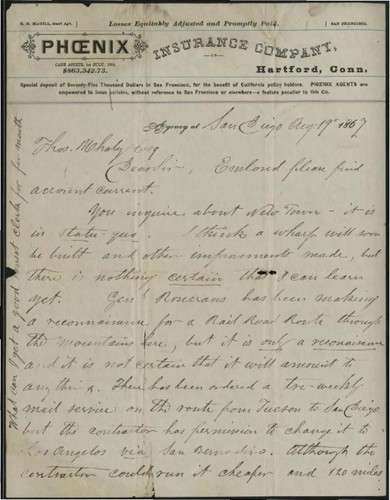 R. H. MAGILL, Gen'l Agt.
Losses Equitably Adjusted and Promptly Paid.
SAN FRANCISCO.
PHŒNIX
INSURANCE COMPANY,
OF
CASH ASSETS, 1st JULY,
Hartford, Conn.
Special deposit of Seventy-Five Thousand Dollars in San Francisco, for the benefit of California policy holders. PHŒNIX AGENTS are
empowered to issue policies, without reference to San Francisco or elsewhere—a feature peculiar to this Co.
Agency at San Diego Aug 19th 1867
Thos. Whaley Esq
Dear Sir, Enclosed please find
account current.
You inquire about New Town - it is
in statu quo. I think a wharf will soon
be built and other improvements made, but
there is nothing certain that I can learn
yet. Genl Rosecrans has been making
a reconnaisance for a Rail Road Route through
the Mountains here, but it is only a reconaisance
and it is not certain that it will amount to
any thing. There has been ordered a tri-weekly
mail service on the route from Tucson to San Diego
but the contractor has permission to change it to
Los Angelos via San Bernardino. Although the
contractor could run it cheaper and 120 miles
What can I get a good honest clerk for per month